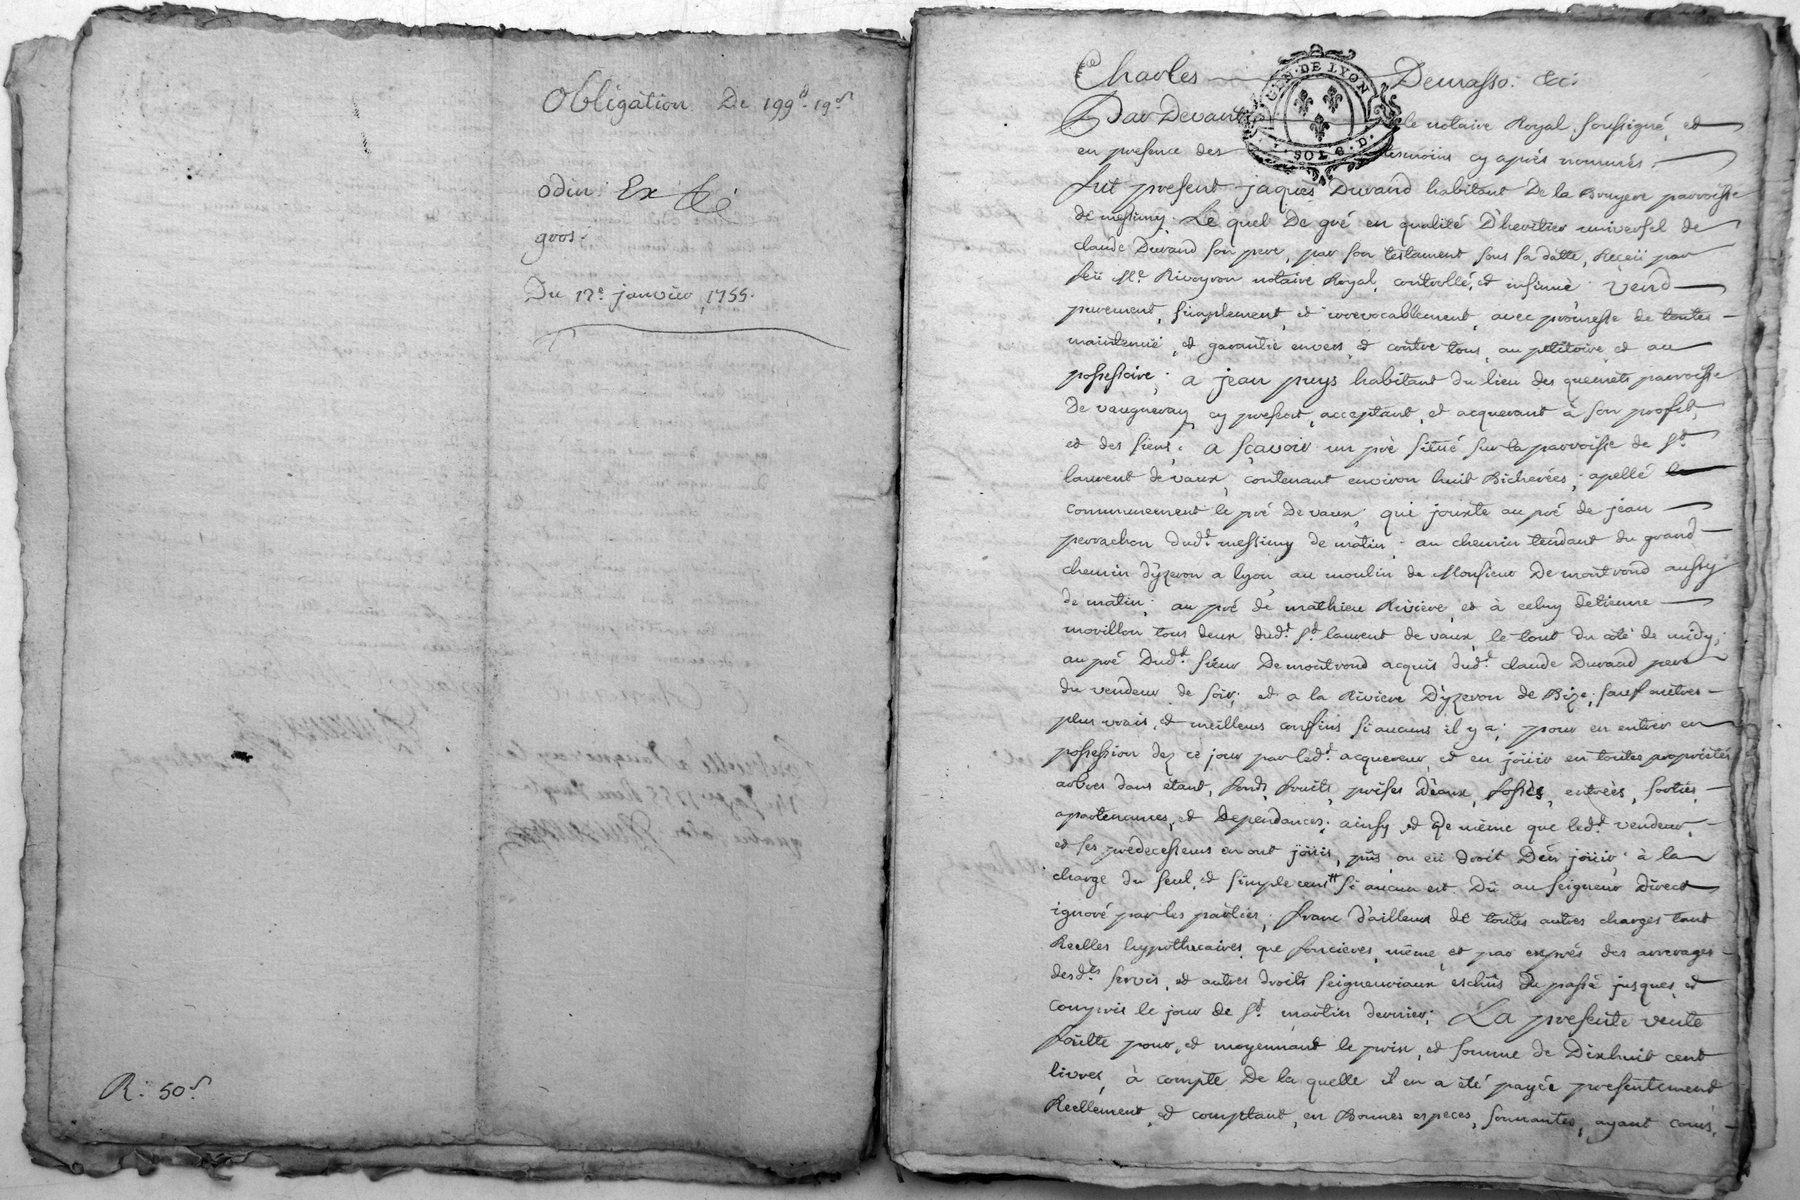 Obligation De 199ᵗᵗ. 19ˢ
odin Ex
goos.
Du 17ᵉ janvier 1755.
R: 50ˢ
Charles Demasso. &c:
GEN. DE LYON
SOLS. D.
Par Devant le notaire Royal soussigné, et
en presence des temoins cy aprés nommés.
fut present jaques Durand habitant De la Bruyere parroisse
de messimy. Le quel De gré en qualité D'heritier universel de
claude Durand son pere, par son testament sous sa datte, Receü par
feü Mᵉ. Rivoyron notaire Royal, controllé, et insinué. vend
purement, simplement, et irrevocablement, avec promesse de toutes
maintenüe, et garantie envers, et contre tous, au petitoire, et au
possessoire; a jean puys habitant du lieu des quemets parroisse
De vaugneray, cy present, acceptant, et acquerant à son profit,
et des siens. a sçavoir un pré situé sur la parroisse de Sᵗ.
laurent de vaux, contenant environ huit Bicherées; apellé
communement le pré De vaux; qui jouxte au pré de jean
perrachon dudᵗ. messimy de matin. au chemin tendant du grand
chemin d'yzeron a lyon, au moulin de Monsieur De montrond aussy
de matin; au pré de mathieu Riviere, et à celuy d'etienne
morillon tous deux dudᵗ. Sᵗ. laurent de vaux, le tout du côté de midy;
au pré Dudᵗ. sieur De montrond acquis dudᵗ. claude Durand pere
du vendeur de soir; et a la Riviere D'yzeron de Bize; sauf autres
plus vrais, et meilleurs confins si aucuns il y a; pour en entrer en
possession dez ce jour par ledᵗ. acquereur, et en joüir en toutes proprietés
arbres dans étant, fonds, fruits, prises d'eaux, fossés, entrées, sorties,
apartenances, et Dependances; ainsy et de même que ledᵗ. vendeur,
et ses predecesseurs en ont joüis, pûs, ou eü droit D'en joüir; à la
charge du seul, et simple cens si aucun est Dû au seigneur direct
ignoré par les parties; franc d'ailleurs de toutes autres charges tant
Reelles hypothecaires, que foncieres, même, et par exprés des arrerages
desdᵗˢ servis, et autres droits seigneuriaux eschûs du passé jusques, et
compris le jour de Sᵗ. martin dernier; La presente vente
faitte pour, et moyennant le prix, et somme de Dixhuit cent
livres, à compte De la quelle il en a été payée presentement
Reellement, et comptant, en Bonnes especes, sonnantes, ayant cours,